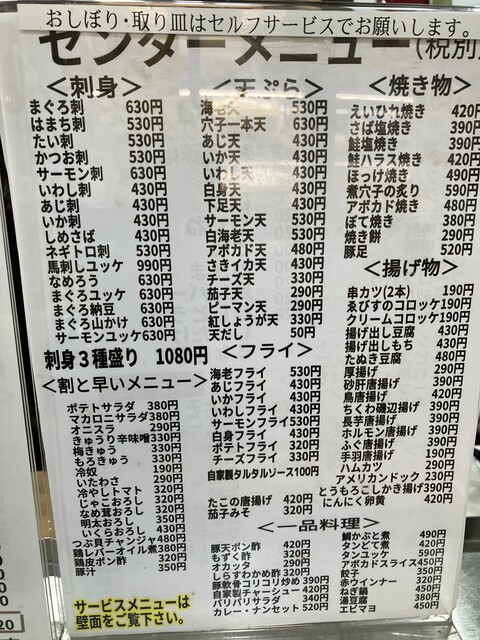 おしぼり・取り皿はセルフサービスでお願いします。
センターメニュー(税別
＜刺身＞
まぐろ刺 630円
はまち刺 530円
たい刺 530円
かつお刺 530円
サーモン刺 630円
いわし刺 430円
あじ刺 430円
いか刺 430円
しめさば 430円
ネギトロ刺 530円
馬刺しユッケ 990円
なめろう 630円
まぐろユッケ 630円
まぐろ納豆 630円
まぐろ山かけ 630円
サーモンユッケ630円
刺身3種盛り 1080円
＜割と早いメニュー＞
ポテトサラダ 380円
マカロニサラダ380円
オニスラ 290円
きゅうり辛味噌330円
梅きゅう 330円
もろきゅう 330円
冷奴 190円
いたわさ 290円
冷やしトマト 320円
じゃこおろし 320円
なめ茸おろし 320円
明太おろし 350円
いくらおろし 430円
つぶ貝チャンジャ480円
鶏レバーオイル煮380円
鶏皮ポン酢 320円
豚汁 350円
サービスメニューは
壁面をご覧下さい。
＜天ぷら＞
海老天 530円
穴子一本天 630円
あじ天 430円
いか天 430円
いわし天 430円
白身天 430円
下足天 430円
サーモン天 530円
白海老天 530円
アボカド天 480円
さきイカ天 430円
チーズ天 330円
茄子天 290円
ピーマン天 290円
紅しょうが天 330円
天だし 50円
＜フライ＞
海老フライ 530円
あじフライ 430円
いかフライ 430円
いわしフライ 430円
サーモンフライ530円
白身フライ 430円
ポテトフライ 320円
チーズフライ 330円
自家製タルタルソース100円
たこの唐揚げ 420円
茄子みそ 320円
＜焼き物＞
えいひれ焼き 420円
さば塩焼き 390円
鮭塩焼き 390円
鮭ハラス焼き 420円
ほっけ焼き 490円
煮穴子の炙り 590円
アボカド焼き 480円
ぼて焼き 380円
焼き餅 290円
豚足 520円
＜揚げ物＞
串カツ(2本) 190円
ゑびすのコロッケ190円
クリームコロッケ190円
揚げ出し豆腐 430円
揚げ出しもち 430円
たぬき豆腐 480円
厚揚げ 290円
砂肝唐揚げ 390円
鳥唐揚げ 420円
ちくわ磯辺揚げ 390円
長芋唐揚げ 390円
ホルモン唐揚げ 430円
ふぐ唐揚げ 390円
手羽唐揚げ 190円
ハムカツ 290円
アメリカンドック 230円
とうもろこしかき揚げ390円
にんにく卵黄 420円
＜一品料理＞
豚天ポン酢 420円
もずく酢 320円
オカッタ 290円
しらすわかめ酢 320円
豚軟骨コリコリ炒め390円
自家製チャーシュー 420円
パリパリサラダ 340円
カレー・ナンセット 520円
鯛かぶと煮 490円
タンどて煮 420円
タンユッケ 590円
アボカドスライス450円
餃子 350円
赤ウインナー 320円
ねぎ鍋 450円
湯豆腐 380円
エビマヨ 450円